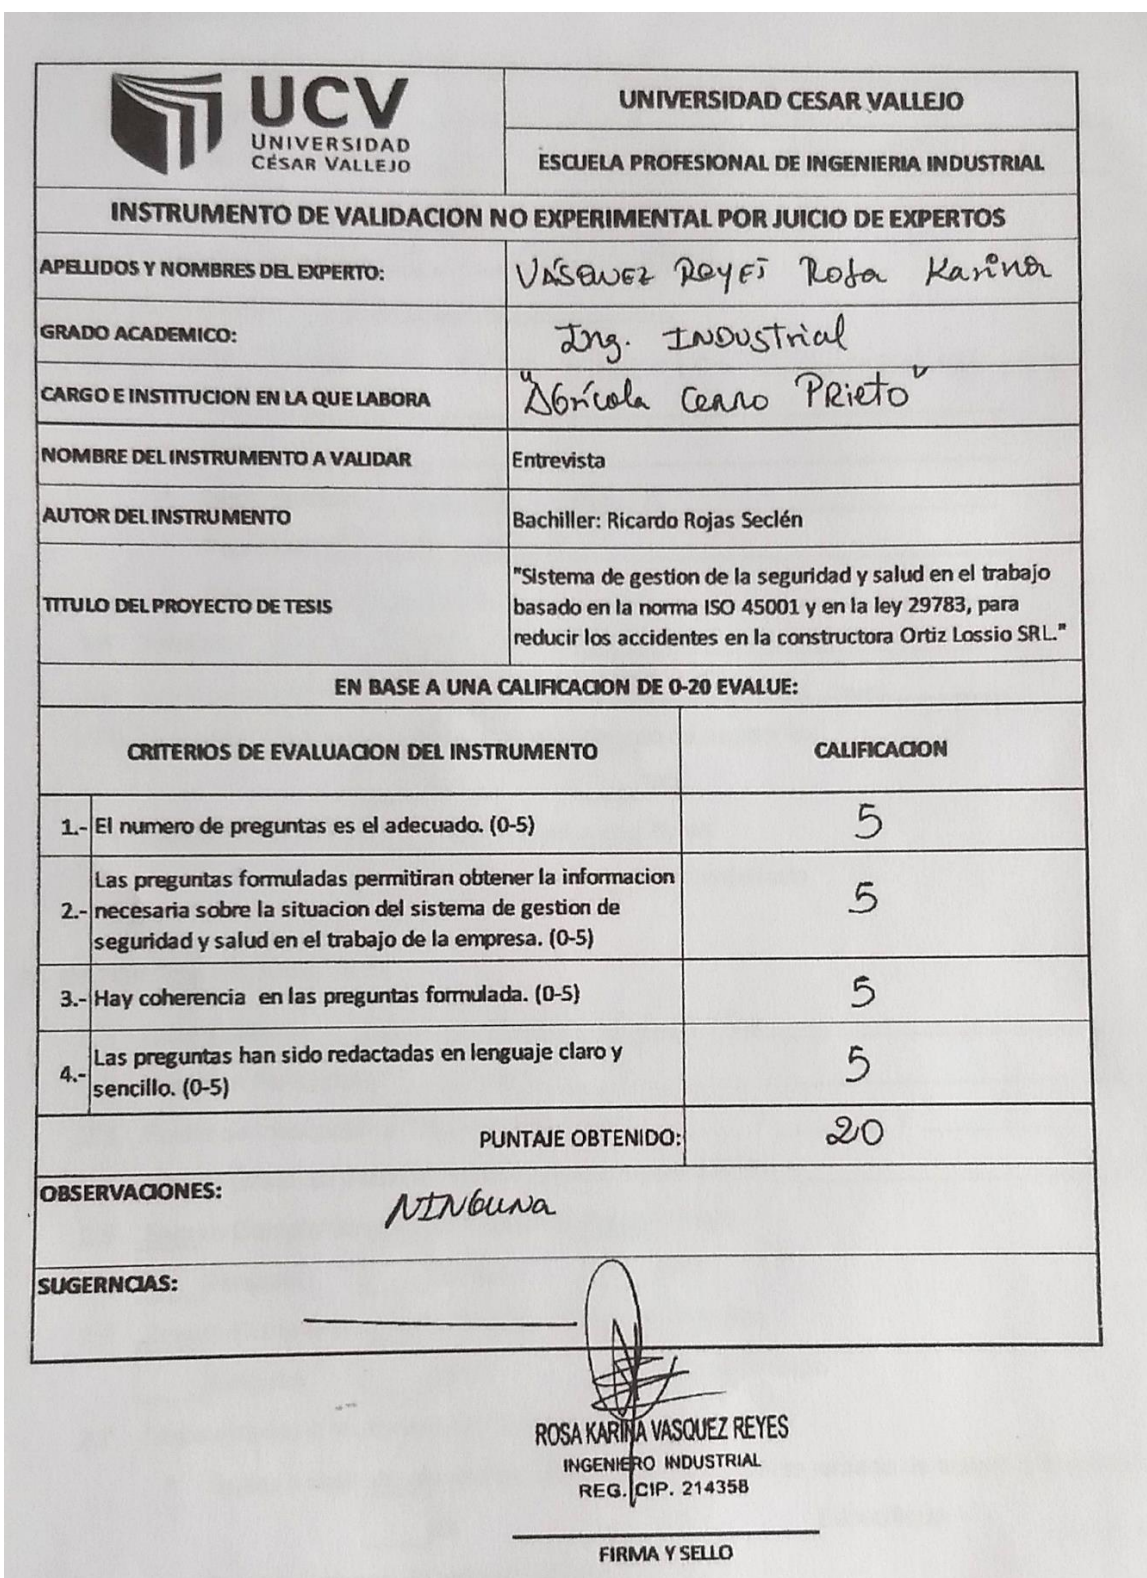 UCV
UNIVERSIDAD
CÉSAR VALLEJO
UNIVERSIDAD CESAR VALLEJO
ESCUELA PROFESIONAL DE INGENIERIA INDUSTRIAL
INSTRUMENTO DE VALIDACION NO EXPERIMENTAL POR JUICIO DE EXPERTOS
APELLIDOS Y NOMBRES DEL EXPERTO: VÁSQUEZ REYES Rosa Karina
GRADO ACADEMICO: Ing. INDUSTrial
CARGO E INSTITUCION EN LA QUE LABORA "Agrícola Cerro PRieto"
NOMBRE DEL INSTRUMENTO A VALIDAR Entrevista
AUTOR DEL INSTRUMENTO Bachiller: Ricardo Rojas Seclén
TITULO DEL PROYECTO DE TESIS
"Sistema de gestion de la seguridad y salud en el trabajo
basado en la norma ISO 45001 y en la ley 29783, para
reducir los accidentes en la constructora Ortiz Lossio SRL."
EN BASE A UNA CALIFICACION DE 0-20 EVALUE:
CRITERIOS DE EVALUACION DEL INSTRUMENTO CALIFICACION
1.- El numero de preguntas es el adecuado. (0-5) 5
Las preguntas formuladas permitiran obtener la informacion
2.- necesaria sobre la situacion del sistema de gestion de 5
seguridad y salud en el trabajo de la empresa. (0-5)
3.- Hay coherencia en las preguntas formulada. (0-5) 5
4.- Las preguntas han sido redactadas en lenguaje claro y 5
sencillo. (0-5)
PUNTAJE OBTENIDO: 20
OBSERVACIONES: NINGUNA
SUGERNCIAS:
ROSA KARINA VASQUEZ REYES
INGENIERO INDUSTRIAL
REG. CIP. 214358
FIRMA Y SELLO